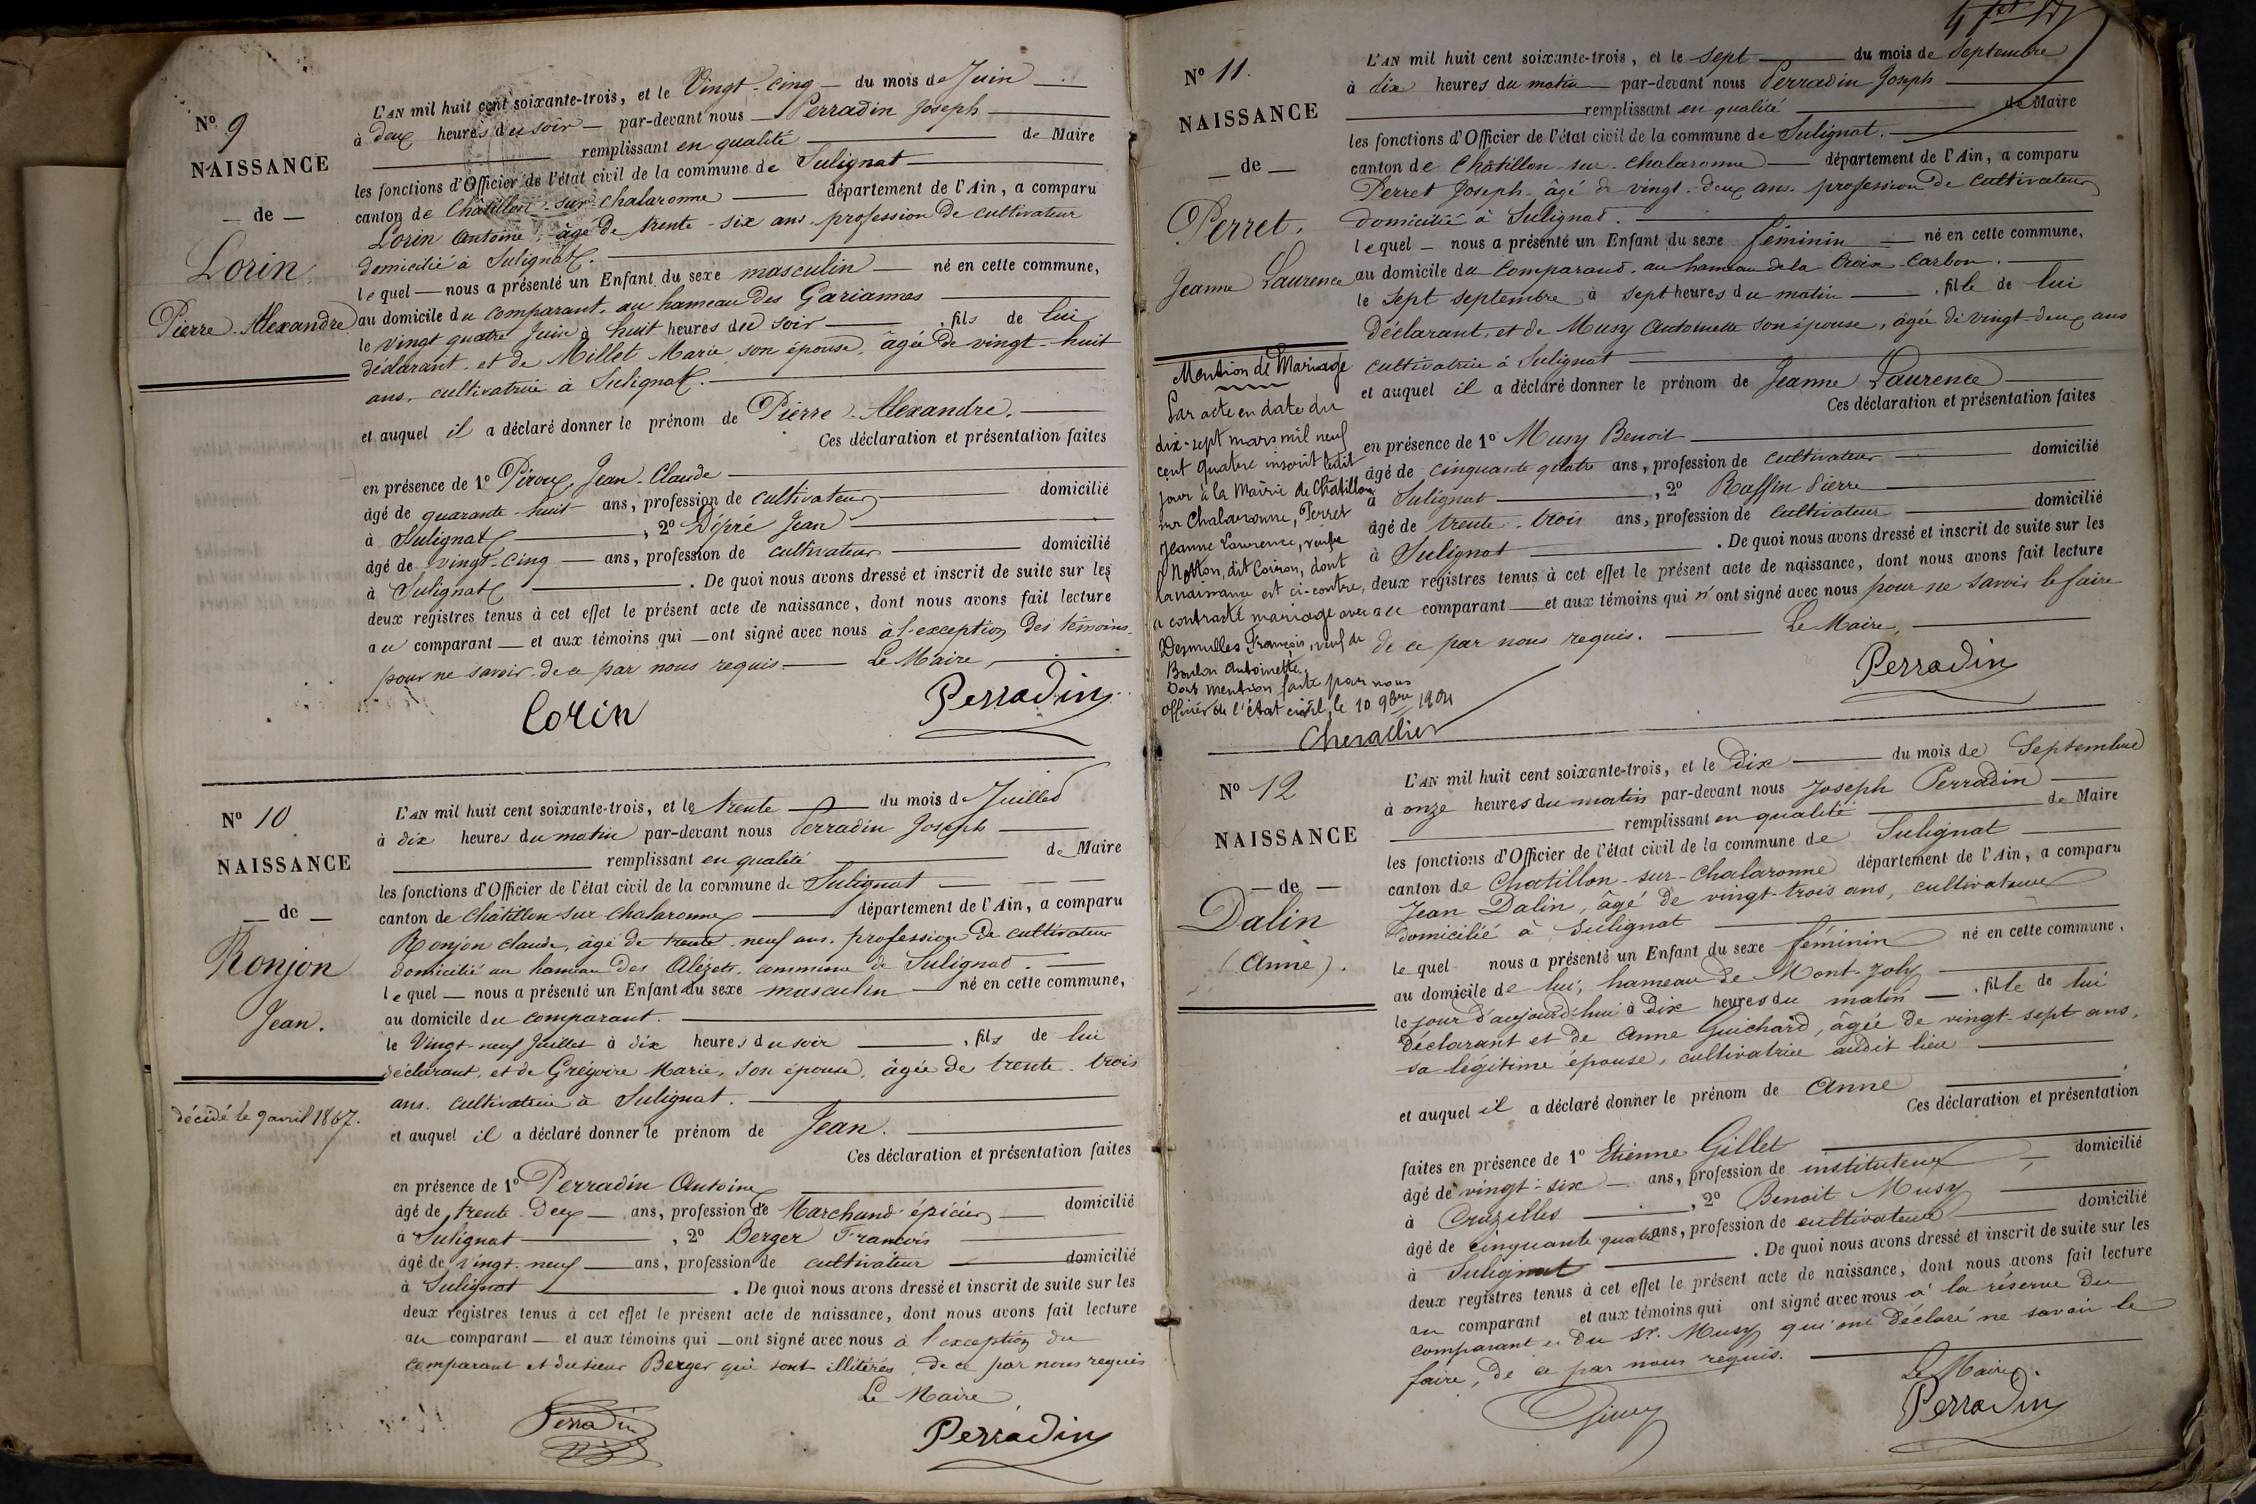 Nº 9
NAISSANCE
de
Lorin
Pierre Alexandre
L'AN mil huit cent soixante-trois, et le Vingt-cinq du mois de Juin
à deux heures du soir par-devant nous Perradin Joseph
remplissant en qualité de Maire
les fonctions d'Officier de l'état civil de la commune de Sulignat
canton de Châtillon-sur-Chalaronne département de l'Ain, a comparu
Lorin Antoine, âgé de trente-six ans profession de cultivateur
domicilié à Sulignat.
lequel nous a présenté un Enfant du sexe masculin né en cette commune,
au domicile du comparant, au hameau des Gariannes
le vingt quatre Juin à huit heures du soir, fils de lui
déclarant et de Millet Marie son épouse, âgée de vingt-huit
ans, cultivatrice à Sulignat.
et auquel il a déclaré donner le prénom de Pierre-Alexandre.
Ces déclaration et présentation faites
en présence de 1º Piroux, Jean-Claude
âgé de quarante-huit ans, profession de cultivateur domicilié
à Sulignat, 2º Dépré Jean
âgé de vingt-cinq ans, profession de cultivateur domicilié
à Sulignat. De quoi nous avons dressé et inscrit de suite sur les
deux registres tenus à cet effet le présent acte de naissance, dont nous avons fait lecture
au comparant et aux témoins qui ont signé avec nous à l'exception des témoins
pour ne savoir de ce par nous requis. Le Maire,
Lorin Perradin
Nº 10
NAISSANCE
de
Ronjon
Jean.
décédé le 9 avril 1867.
L'AN mil huit cent soixante-trois, et le trente du mois de Juillet
à dix heures du matin par-devant nous Perradin Joseph
remplissant en qualité de Maire
les fonctions d'Officier de l'état civil de la commune de Sulignat
canton de Châtillon-sur-Chalaronne département de l'Ain, a comparu
Ronjon Claude, âgé de trente-neuf ans, profession de cultivateur
domicilié au hameau des Alézets, commune de Sulignat.
lequel nous a présenté un Enfant du sexe masculin né en cette commune,
au domicile du comparant.
le Vingt-neuf Juillet à dix heures du soir, fils de lui
déclarant, et de Grégoire Marie, son épouse, âgée de trente-trois
ans, cultivatrice à Sulignat.
et auquel il a déclaré donner le prénom de Jean.
Ces déclaration et présentation faites
en présence de 1º Perradin Antoine
âgé de trente-deux ans, profession de Marchand épicier domicilié
à Sulignat, 2º Berger François
âgé de vingt-neuf ans, profession de cultivateur domicilié
à Sulignat. De quoi nous avons dressé et inscrit de suite sur les
deux registres tenus à cet effet le présent acte de naissance, dont nous avons fait lecture
au comparant et aux témoins qui ont signé avec nous à l'exception du
comparant et du sieur Berger qui sont illitérés, de ce par nous requis
Le Maire
Perradin Perradin
Nº 11.
NAISSANCE
de
Perret,
Jeanne Laurence
Mention de Mariage
Par acte en date du
dix-sept mars mil neuf
cent quatre inscrit ledit
jour à la Mairie de Châtillon
sur Chalaronne, Perret
Jeanne Laurence, veuve
dont
la naissance est ci-contre,
a contracté mariage avec
Desmulles François, veuf de
Boulon Antoinette.
Dont mention faite par nous
officier de l'état civil, le 10 9bre 1904
Chevallier
L'AN mil huit cent soixante-trois, et le sept du mois de Septembre
à dix heures du matin par-devant nous Perradin Joseph
remplissant en qualité de Maire
les fonctions d'Officier de l'état civil de la commune de Sulignat.
canton de Châtillon-sur-Chalaronne département de l'Ain, a comparu
Perret Joseph, âgé de vingt-deux ans, profession de cultivateur
domicilié à Sulignat.
lequel nous a présenté un Enfant du sexe féminin né en cette commune,
au domicile du comparant, au hameau de la Croix-Carbon.
le sept septembre à sept heures du matin, fille de lui
déclarant, et de Musy Antoinette son épouse, âgée de vingt-deux ans
cultivatrice à Sulignat
et auquel il a déclaré donner le prénom de Jeanne Laurence
Ces déclaration et présentation faites
en présence de 1º Musy Benoit
âgé de cinquante quatre ans, profession de cultivateur domicilié
à Sulignat, 2º Raffin Pierre
âgé de trente-trois ans, profession de cultivateur domicilié
à Sulignat. De quoi nous avons dressé et inscrit de suite sur les
deux registres tenus à cet effet le présent acte de naissance, dont nous avons fait lecture
au comparant et aux témoins qui n'ont signé avec nous pour ne savoir le faire
de ce par nous requis. Le Maire,
Perradin
Nº 12
NAISSANCE
de
Dalin
(Anne).
L'AN mil huit cent soixante-trois, et le Dix du mois de Septembre
à onze heures du matin par-devant nous Joseph Perradin
remplissant en qualité de Maire
les fonctions d'Officier de l'état civil de la commune de Sulignat
canton de Chatillon-sur-Chalaronne département de l'Ain, a comparu
Jean Dalin, âgé de vingt-trois ans, cultivateur
domicilié à Sulignat
lequel nous a présenté un Enfant du sexe féminin né en cette commune,
au domicile de lui, hameau de Mont-Joly
le jour d'aujourd'hui à Dix heures du matin, fille de lui
déclarant et de Anne Guichard, âgée de vingt-sept ans,
sa légitime épouse, cultivatrice audit lieu
et auquel il a déclaré donner le prénom de Anne
Ces déclaration et présentation
faites en présence de 1º Etienne Gillet
âgé de vingt-six ans, profession de instituteur, domicilié
à Cruzilles, 2º Benoit Musy
âgé de cinquante quatre ans, profession de cultivateur domicilié
à Sulignat. De quoi nous avons dressé et inscrit de suite sur les
deux registres tenus à cet effet le présent acte de naissance, dont nous avons fait lecture
au comparant et aux témoins qui ont signé avec nous à la réserve du
comparant et du Sr. Musy qui ont déclaré ne savoir le
faire, de ce par nous requis.
Le Maire.
Perradin